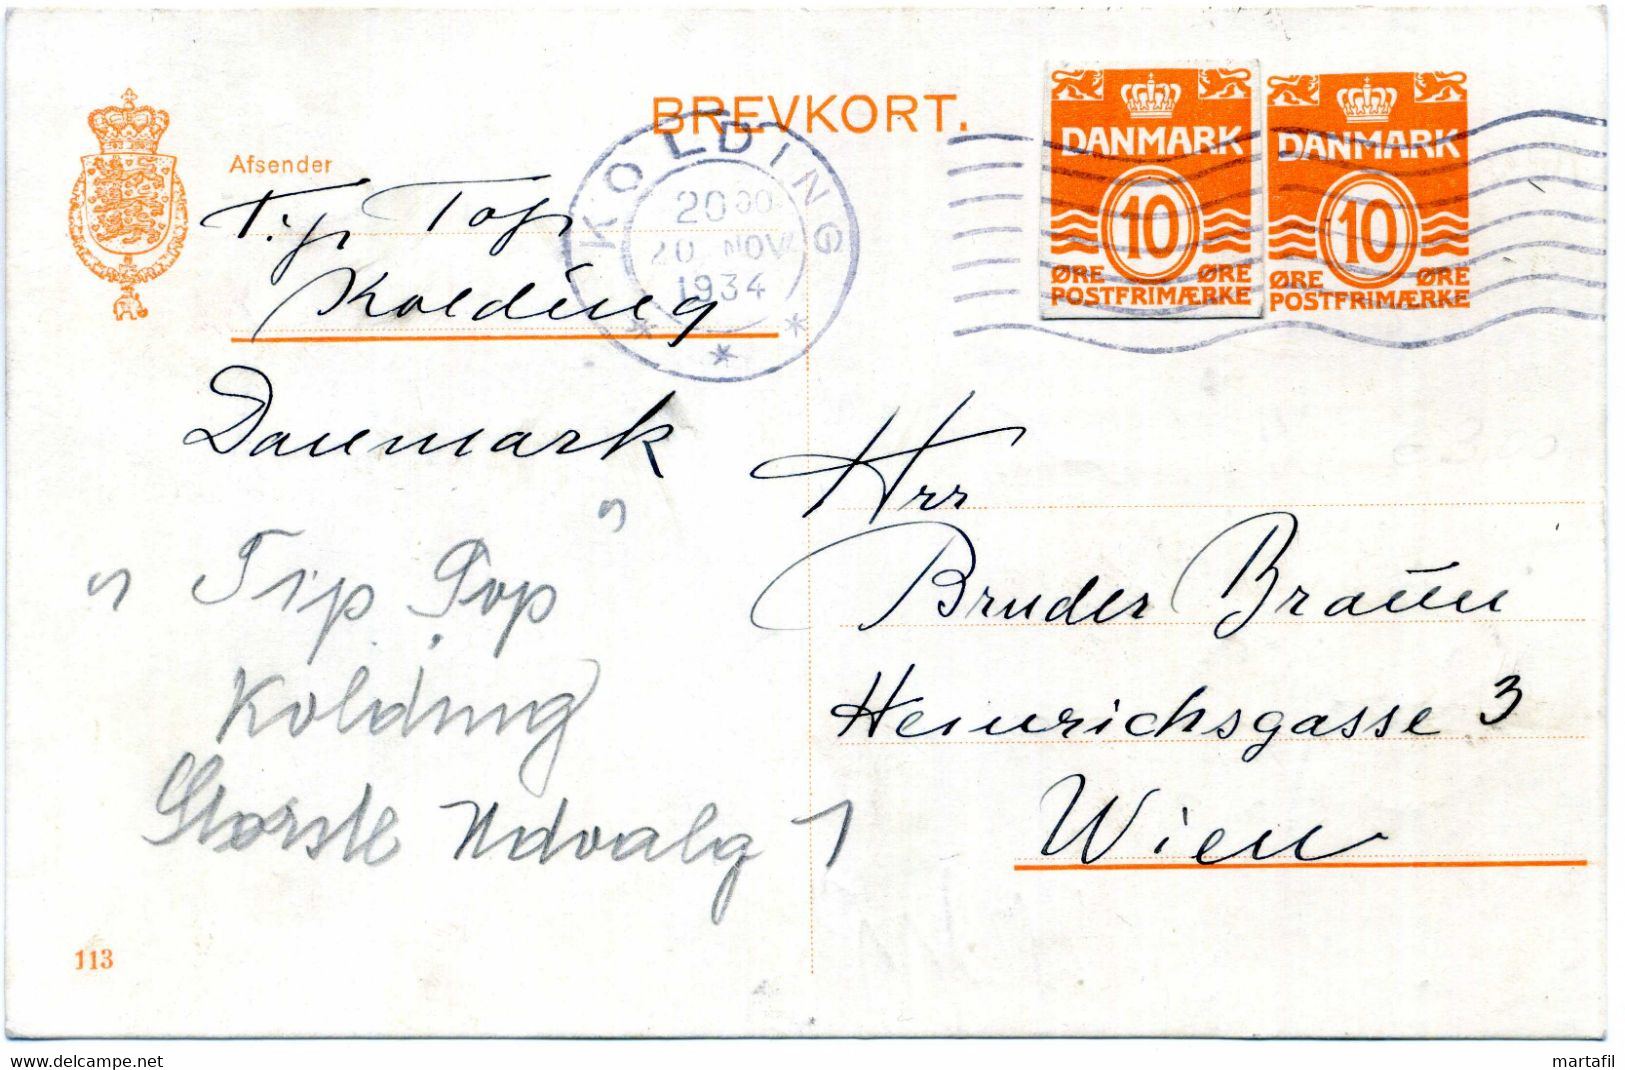 BREVKORT.
Afsender
Tip Top
Kolding
Danmark
KOLDING
20 00
20. NOV.
1934
DANMARK
10
ØRE ØRE
POSTFRIMÆRKE
DANMARK
10
ØRE ØRE
POSTFRIMÆRKE
Hrr
Bruder Braun
Heinrichsgasse 3
Wien
" Tip Pop "
Kolding
Største Udvalg
113
delcampe.net
martafil